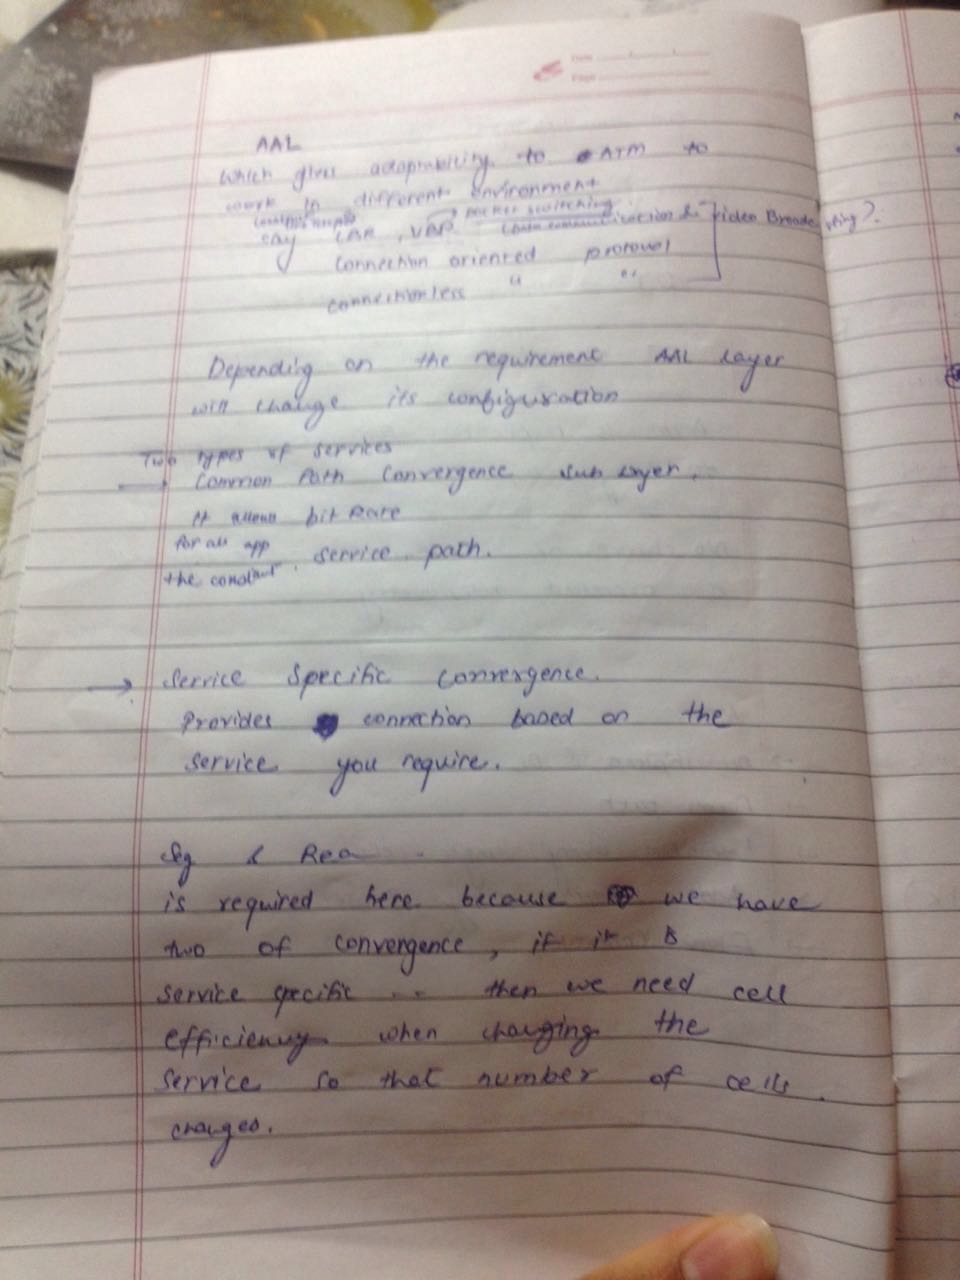 Date
Page
AAL
Which gives adaptability to ATM to
work in different environment
packet switching
say CBR, VBR (Data communication & video Broadcasting?
connection oriented protocol
connectionless " "
Depending on the requirement AAL layer
will change its configuration
Two types of services
→ Common Path Convergence sub layer.
It allows bit Rate
for all app
the constant service path.
→ Service Specific convergence.
Provides connection based on the
service you require.
Seg & Rea
is required here because we have
two of convergence, if it is
service specific -- then we need cell
efficiency when changing the
service so that number of cells
changes.